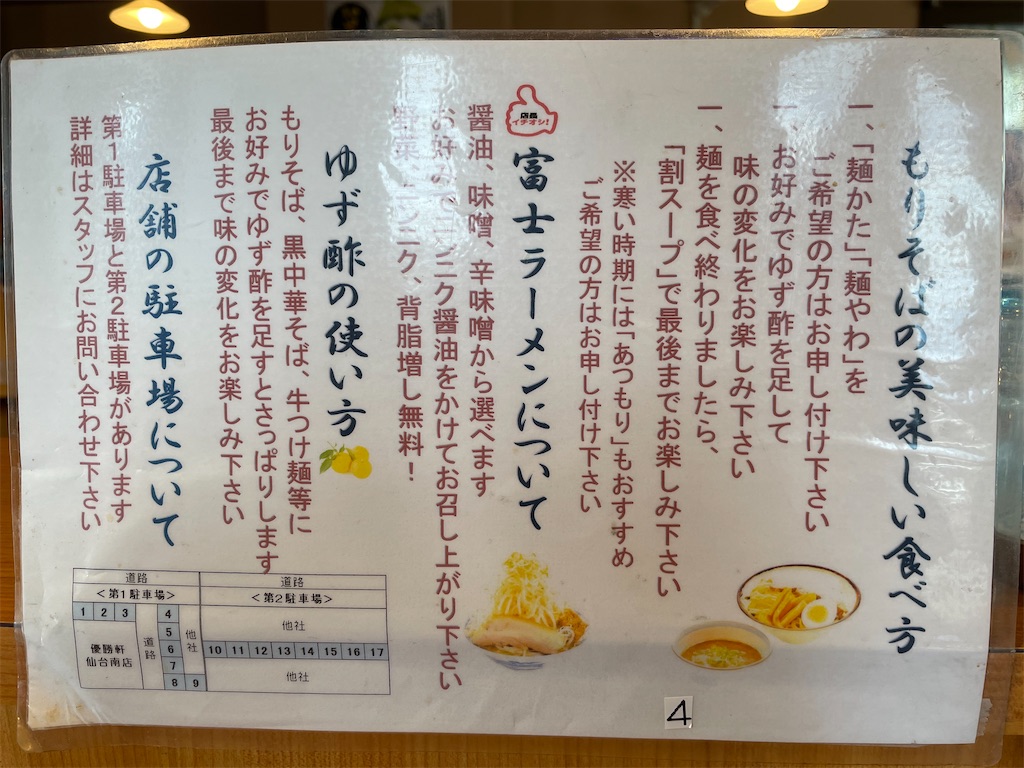 もりそばの美味しい食べ方
一、「麺かた」「麺やわ」を
ご希望の方はお申し付け下さい
一、お好みでゆず酢を足して
味の変化をお楽しみ下さい
一、麺を食べ終わりましたら、
「割スープ」で最後までお楽しみ下さい
※寒い時期には「あつもり」もおすすめ
ご希望の方はお申し付け下さい
店長
イチオシ!
富士ラーメンについて
醤油、味噌、辛味噌から選べます
お好みでニンニク醤油をかけてお召し上がり下さい
野菜、ニンニク、背脂増し無料！
ゆず酢の使い方
もりそば、黒中華そば、牛つけ麺等に
お好みでゆず酢を足すとさっぱりします
最後まで味の変化をお楽しみ下さい
店舗の駐車場について
第1駐車場と第2駐車場があります
詳細はスタッフにお問い合わせ下さい
道路
＜第1駐車場＞
1 2 3
4
5
6
7
8 9
道路
他社
優勝軒
仙台南店
道路
＜第2駐車場＞
他社
10 11 12 13 14 15 16 17
他社
4